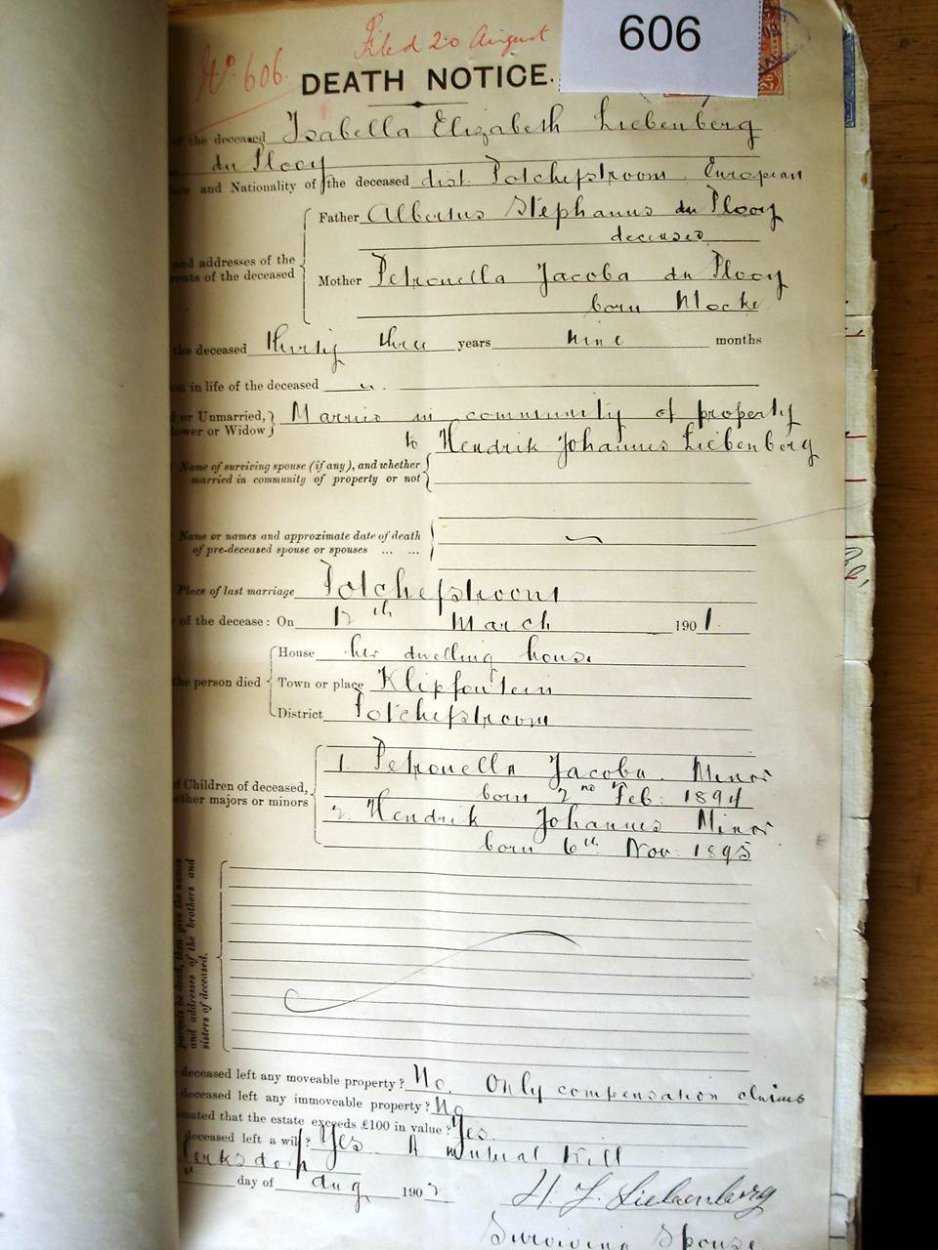 606
Filed 20 August
No 606.
DEATH NOTICE.
of the deceased Isabella Elizabeth Liebenberg
du Plooy
and Nationality of the deceased dist. Potchefstroom. European
Father Albertus Stephanus du Plooy
deceased
and addresses of the
of the deceased
Mother Petronella Jacoba du Plooy
born Mocke
the deceased thirty three years nine months
in life of the deceased
or Unmarried, Married in community of property
or Widow to Hendrik Johannes Liebenberg
Name of surviving spouse (if any), and whether
married in community of property or not
Name or names and approximate date of death
of pre-deceased spouse or spouses ... ...
Place of last marriage Potchefstroom
of the decease: On 12th March 1901.
House her dwelling house
the person died Town or place Klipfontein
District Potchefstroom
1 Petronella Jacoba. Minor
of Children of deceased, born 2nd Feb. 1894
majors or minors 2. Hendrik Johannes Minor
born 6th Nov. 1895
be dead, then give the names
and addresses of the brothers and
sisters of deceased.
deceased left any moveable property? No. Only compensation claims
deceased left any immoveable property? No
that the estate exceeds £100 in value? Yes
deceased left a will? Yes. A mutual Will
day of Aug 1902
H. J. Liebenberg
Surviving Spouse